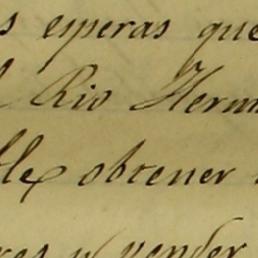 s esperas que
Rio Herm
ble obtener
res y vender